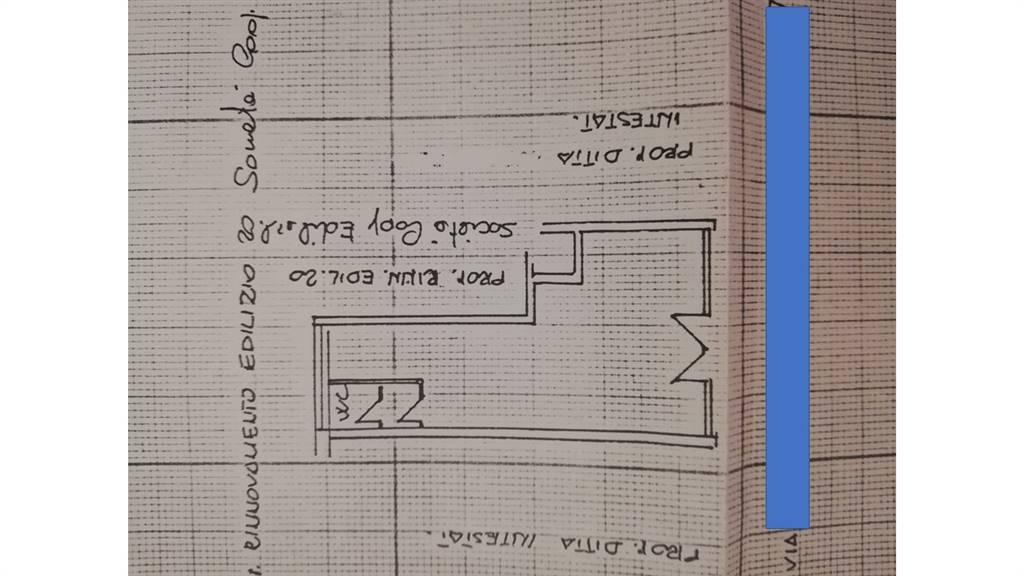 PROP. DITTA
INTESTAT.
PROP. RINN. EDIL. 20
Società Coop Edilsil. 82
RINNOVAMENTO EDILIZIO 20 Società Coop.
PROP. DITTA INTESTAT.
WC
VIA